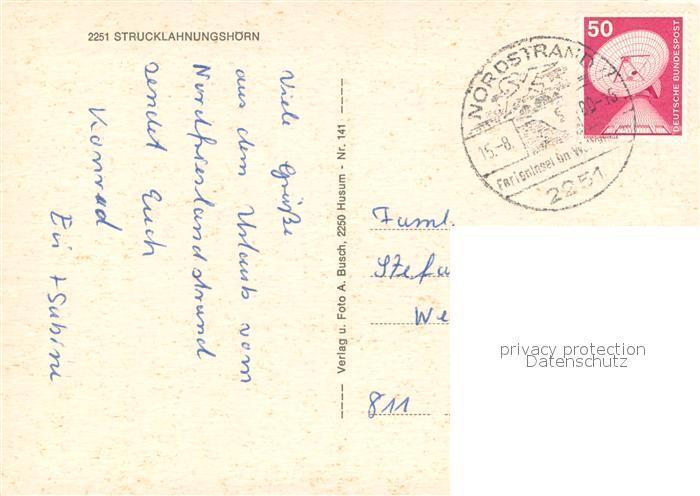 2251 STRUCKLAHNUNGSHÖRN
Viele Grüße
aus dem Urlaub vom
Nordfriesland strand
sendet Euch
Konrad
Evi + Sabine
Verlag u. Foto A. Busch, 2250 Husum - Nr. 141
50
DEUTSCHE BUNDESPOST
NORDSTRAND
15.-8.
Ferieninsel
2251
Faml.
Stefa
We
811
privacy protection
Datenschutz